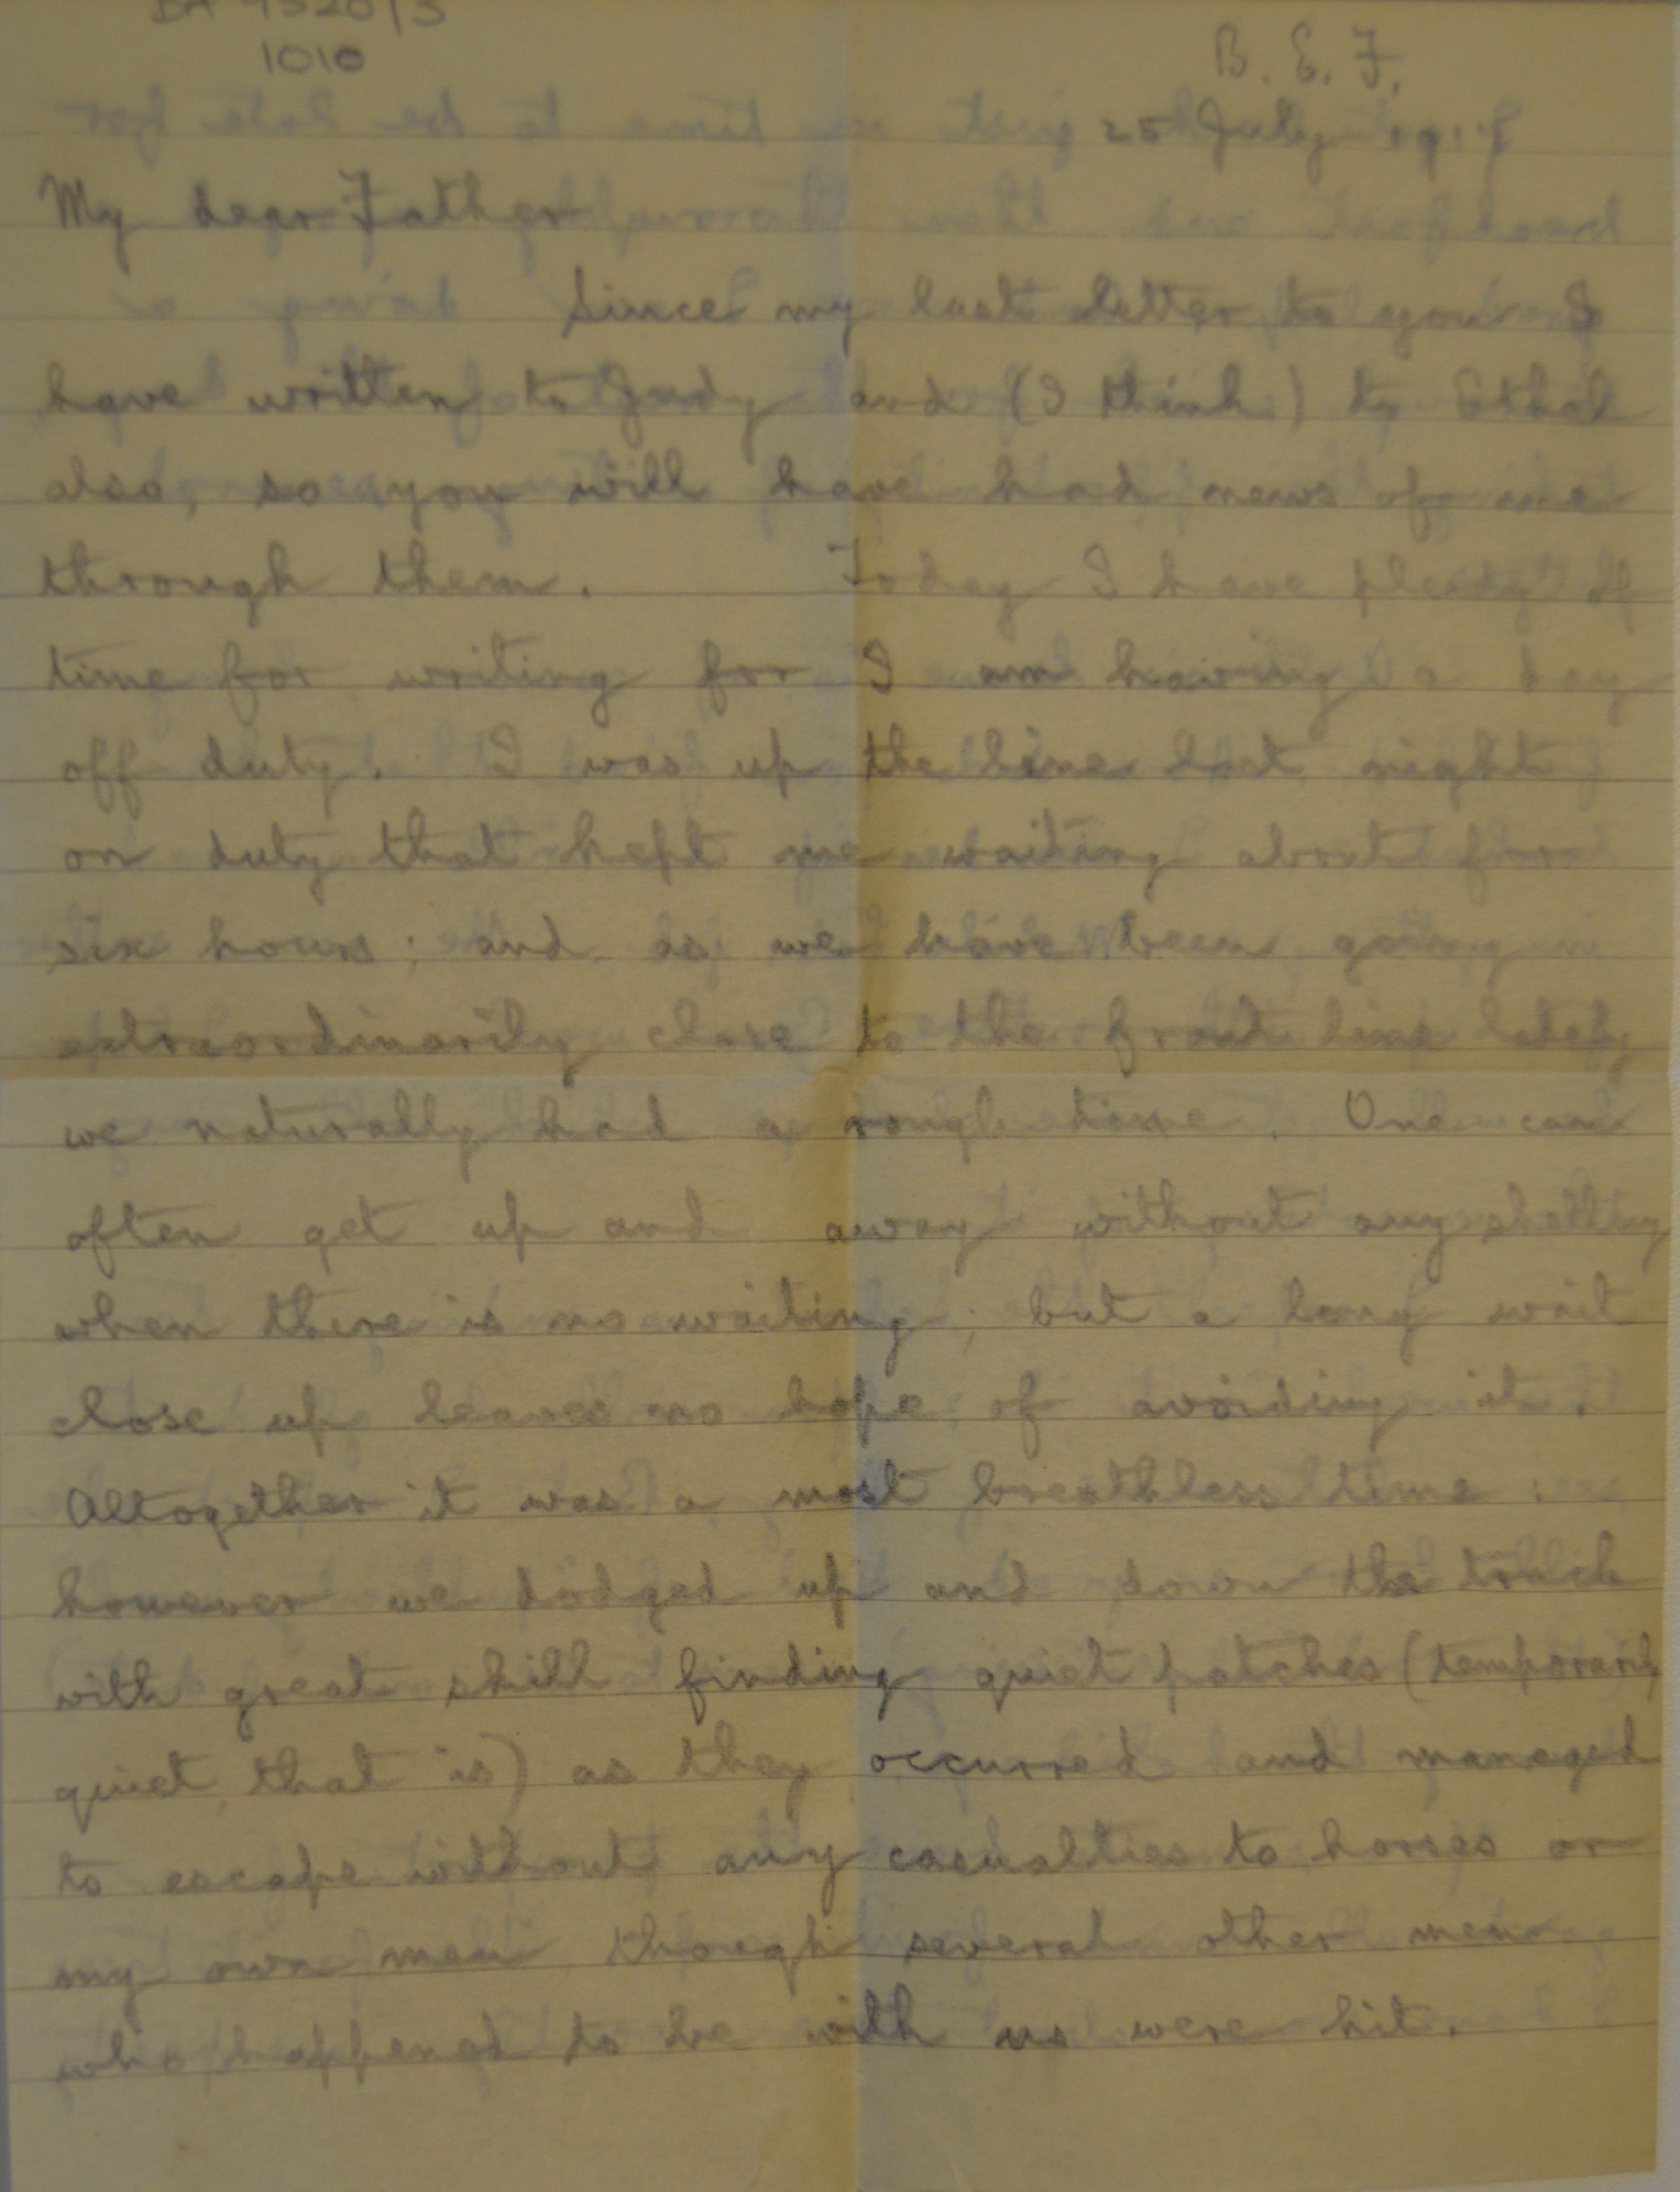 1010
B. E. F.
25 July 1917
My dear Father
Since my last letter to you I
have written to Judy and (I think) to Ethel
also, so you will have had news of me
through them. Today I have plenty of
time for writing for I am having a day
off duty. I was up the line last night
on duty that kept me waiting about for
six hours; and as we have been going
extraordinarily close to the front line lately
we naturally had a rough time. One can
often get up and away without any shelling
when there is no waiting; but a long wait
close up leaves no hope of avoiding it.
Altogether it was a most breathless time:
however we dodged up and down the track
with great skill finding quiet patches (temporarily
quiet, that is) as they occurred and managed
to escape without any casualties to horses or
my own men, though several other men
who happened to be with us were hit.